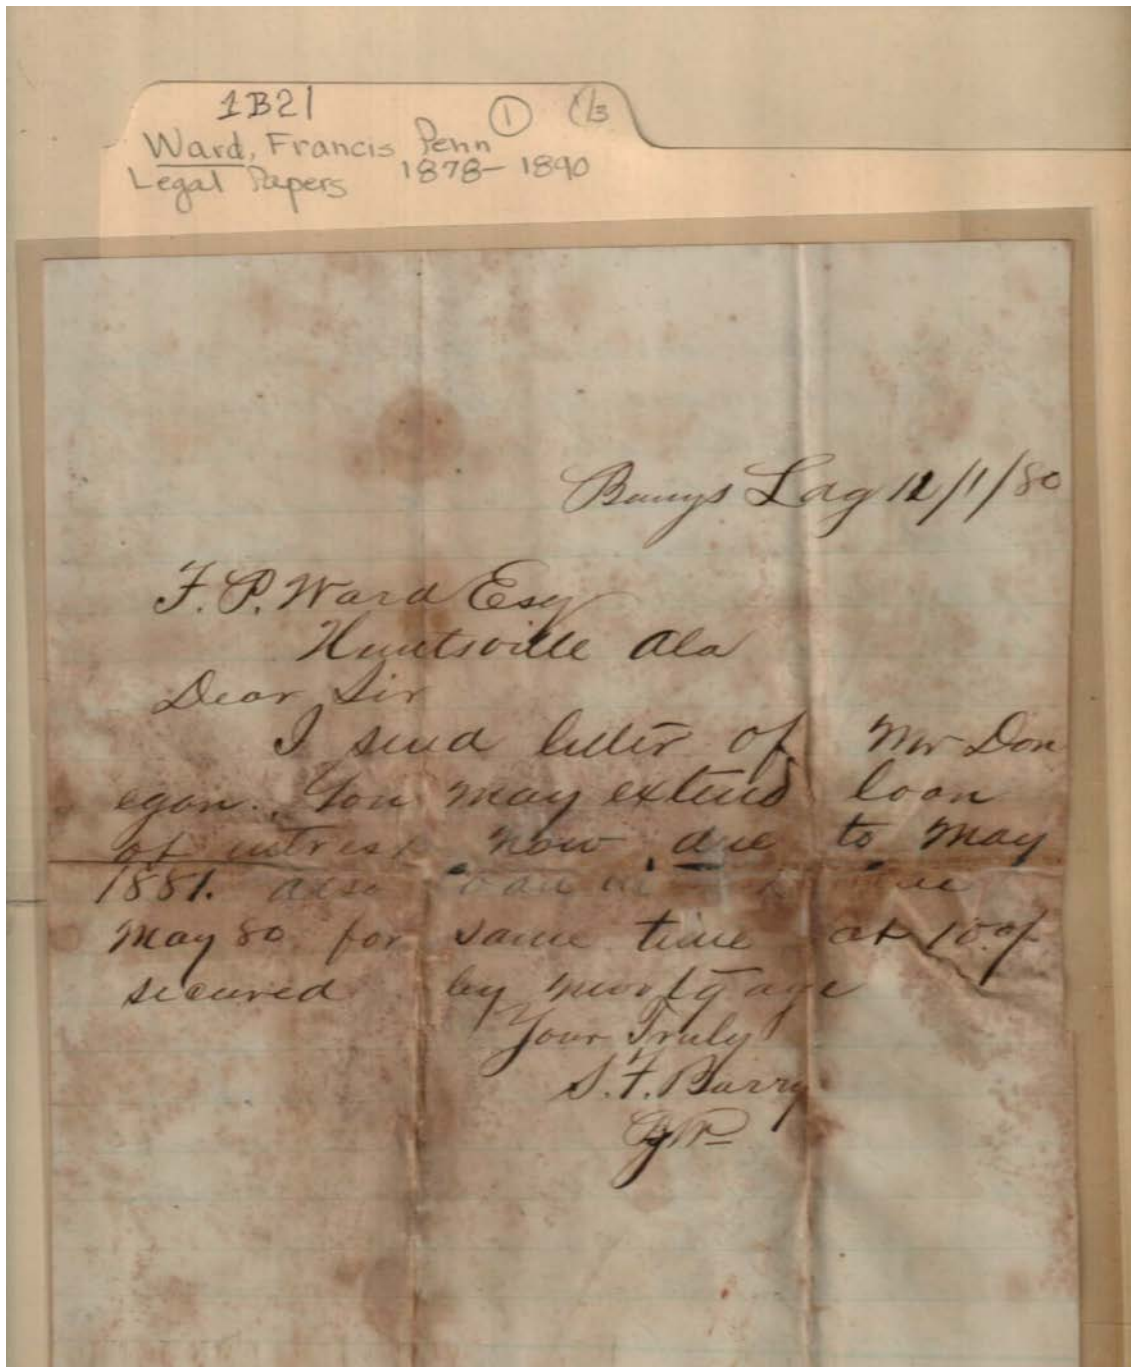 1B21 1 1/3
Ward, Francis Penn
Legal Papers 1878-1890
Lag 12/1/80
F. P. Ward Esq
Huntsville Ala
Dear Sir
I send letter of Mr Don
egan. You may extend loan
of intrest now due to May
1881. also
May 80 for same time at 10%
secured by mortgage
Your Truly
S. F. Barry